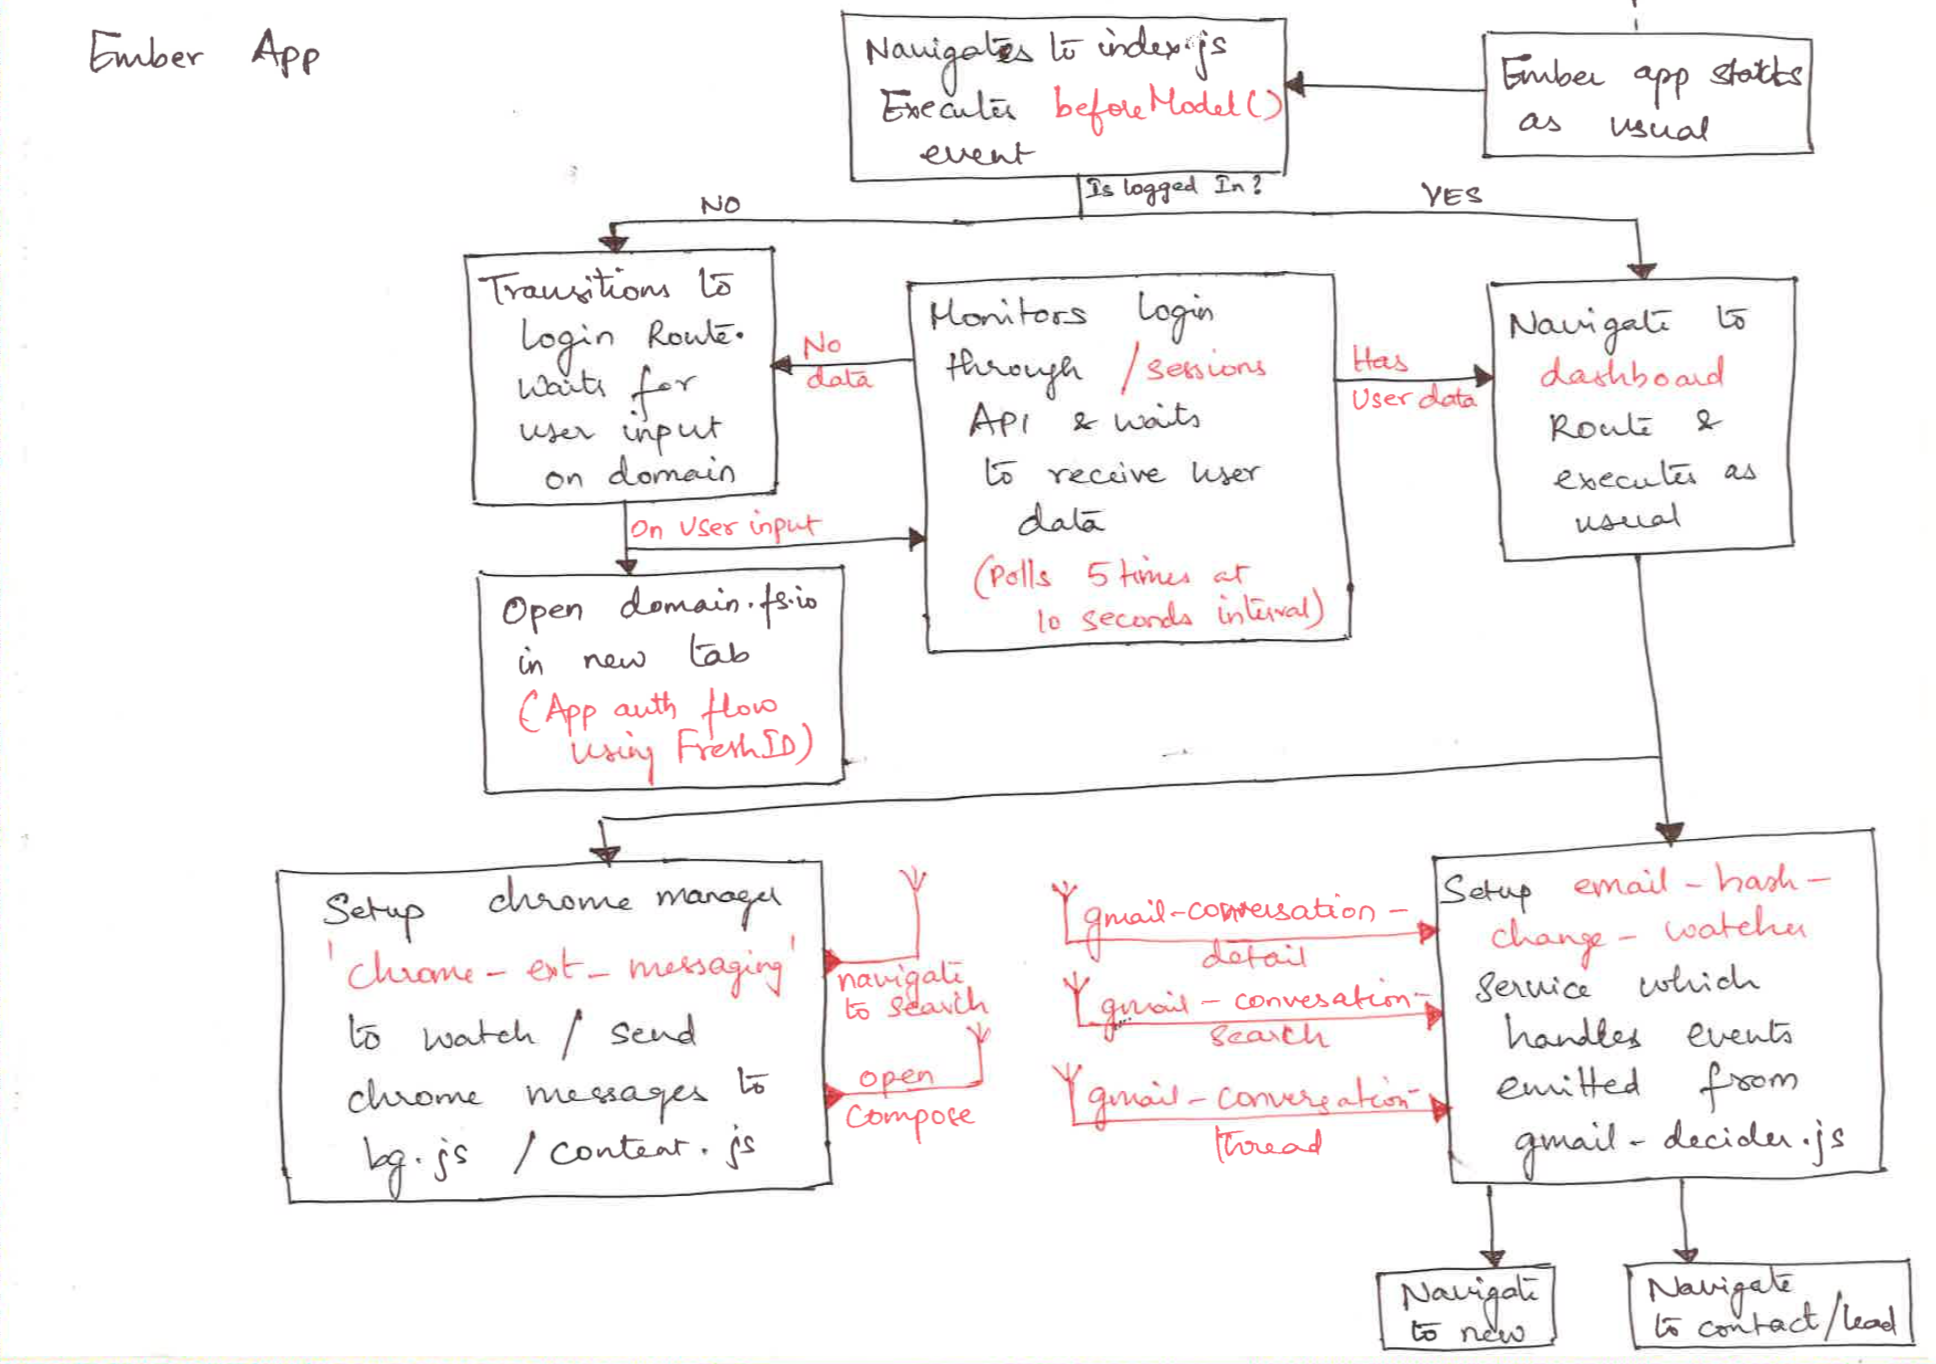 Ember App
Navigates to index.js
Executes beforeModel()
event
Ember app starts
as usual
Is logged In?
NO
YES
Transitions to
Login Route.
Waits for
user input
on domain
No
data
Monitors Login
through /sessions
API & waits
to receive user
data
(Polls 5 times at
10 seconds interval)
Has
User data
Navigate to
dashboard
Route &
executes as
usual
On User input
Open domain.fs.io
in new tab
(App auth flow
using FreshID)
Setup chrome manager
'chrome-ext-messaging'
to watch / send
chrome messages to
bg.js / content.js
navigate
to search
open
compose
gmail-conversation-
detail
gmail-convesation-
search
gmail-conversation-
thread
Setup email-hash-
change-watcher
service which
handles events
emitted from
gmail-decider.js
Navigate
to new
Navigate
to contact/lead